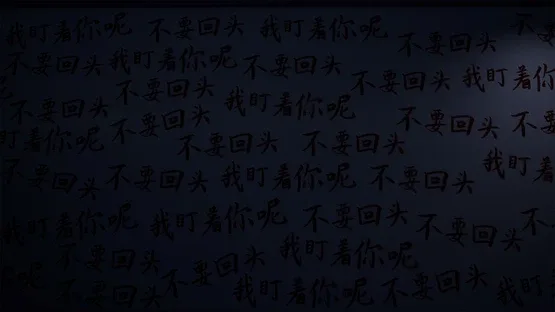 我盯着你呢 不要回头 我盯着你呢 不要回头 不
不要回头 我盯着你呢 不要回头 不要回头 我盯着你
不要回头 不要回头 我盯着你呢 不要回头 不要
盯着你呢 不要回头 不要回头 不要回头 我盯着
不要回头 我盯着你呢 不要回头
我盯着你呢 我盯着你呢 不要回头 不要回头 不
呢 不要回头 不要回头 我盯着你呢
不要回头 我盯着你呢 不要回头 我盯着